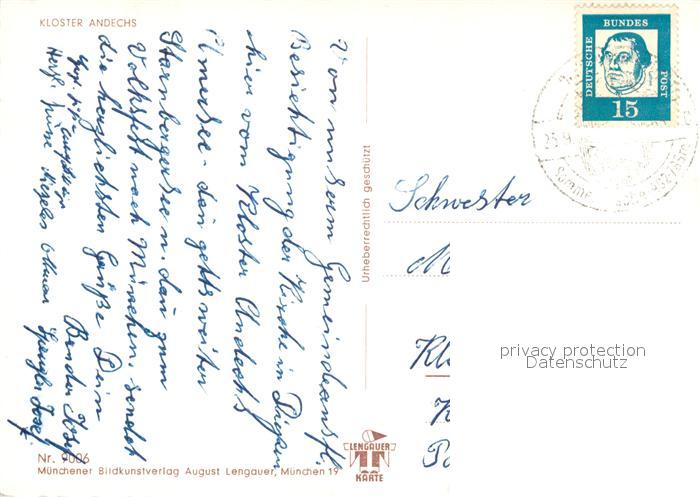 KLOSTER ANDECHS
Von unserm Gemeindeausfl.
Besichtigung der Kirche in Dießen
hier vom Kloster Andechs
Amersee. dan gehts weiter
Starnbergersee u. dan zum
Volksfest nach München. sendet
die herzlichsten Grüße Dein
Bender Josef
Herzl. Grüße
Spengler Josef
Nr. 9006
Münchener Bildkunstverlag August Lengauer, München 19
Urheberrechtlich geschützt
LENGAUER
KARTE
DEUTSCHE
BUNDES
POST
15
Schwester
M
Kl
K
privacy protection
Datenschutz